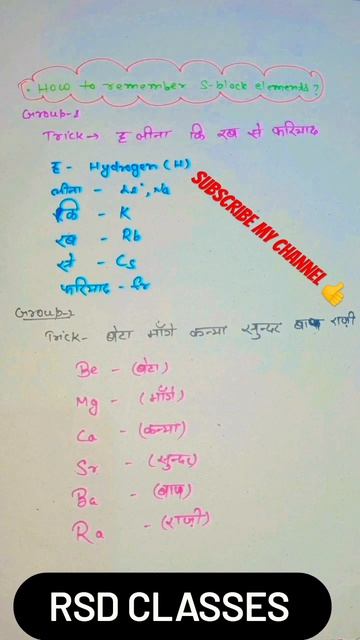 . How to remember S-block elements?
Group-1
Trick→ ह लीना कि रब से फरियाद
ह - Hydrogen (H)
लीना - Li, Na
कि - K
रब - Rb
से - Cs
फरियाद - Fr
SUBSCRIBE MY CHANNEL
Group-2
Trick- बेटा माँगे कन्या सुन्दर बाप राज़ी
Be - (बेटा)
Mg - (माँगे)
Ca - (कन्या)
Sr - (सुन्दर)
Ba - (बाप)
Ra - (राज़ी)
RSD CLASSES